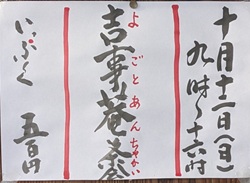 十月十二日(日)
九時〜十六時
吉事菴茶会
よごとあんちゃかい
いっぷく 五百円